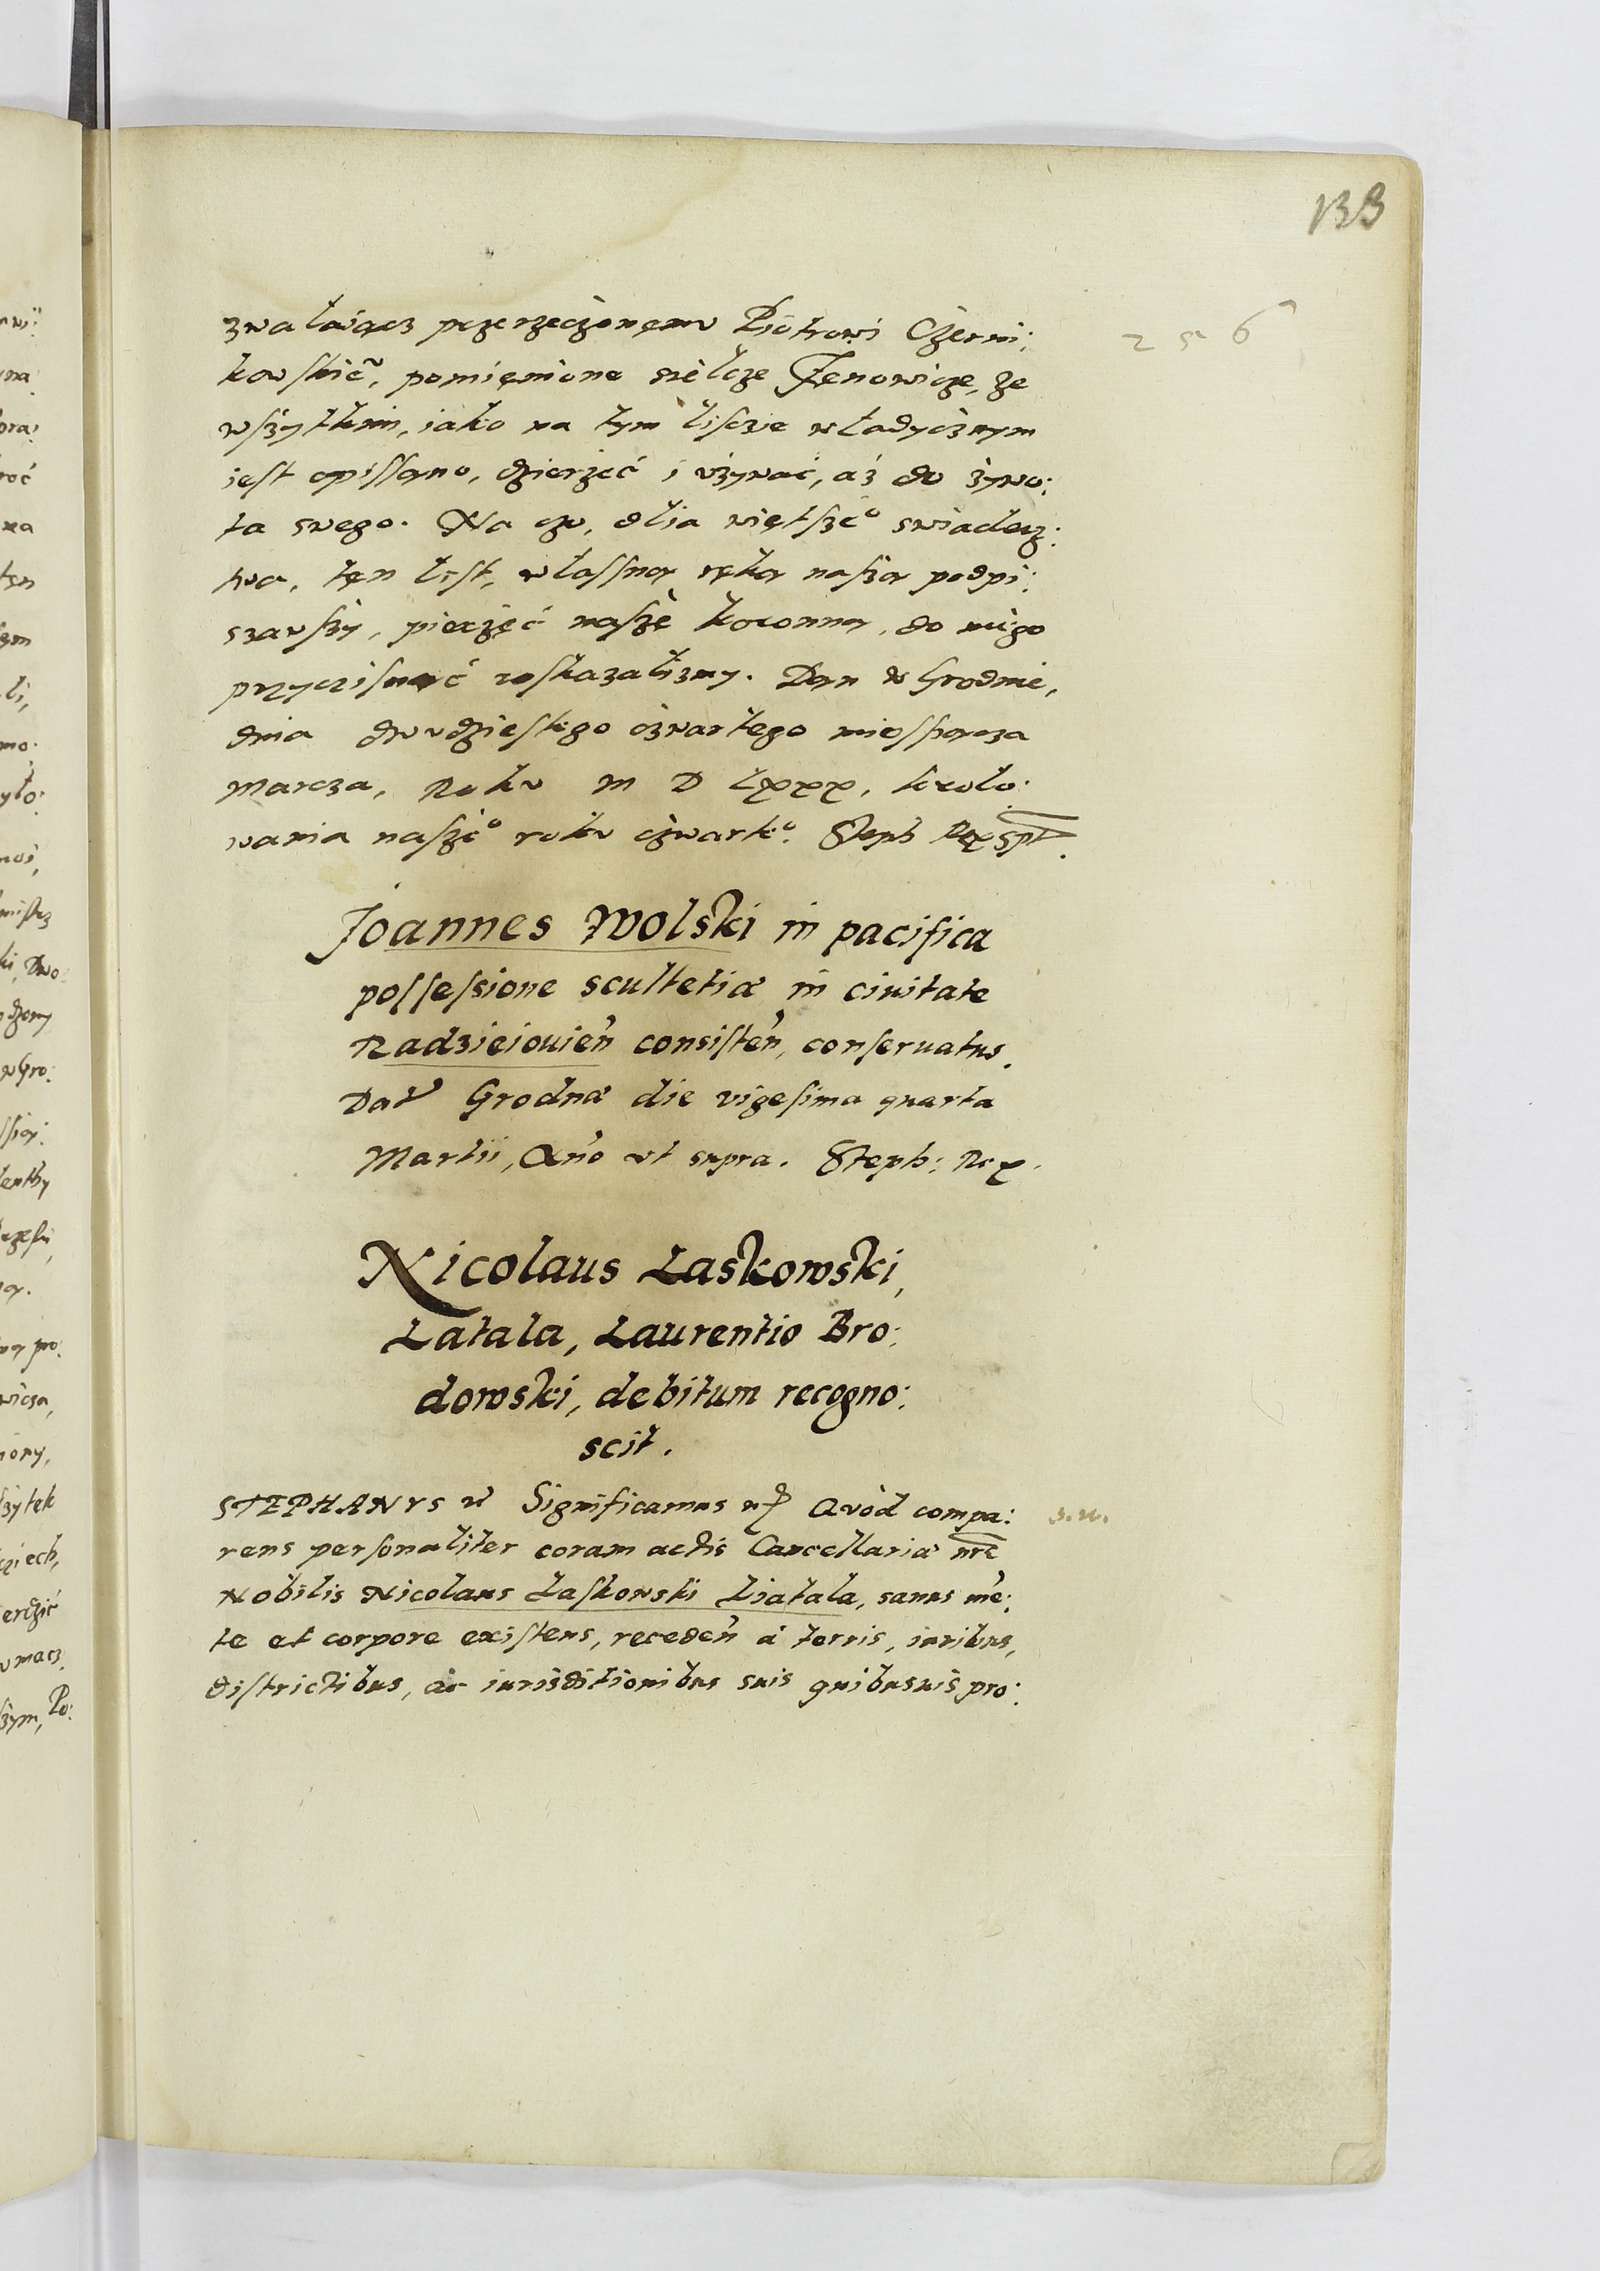 133
256
zwalaiącz przerzeczonęmu Piotrowi Czerni:
kowskie͂, pomięnione sielcze Zenowicze, ze
wszytkim, iako na tym liscie władycznym
iest opissano, dzierżeć i vżywać, aż do żywo:
ta swego. Na czo, dlia więtszeo swiadecz:
twa, tęn list, własną ręką naszą podpi:
szawszy, pieczęć naszę koronną, do niego
przyczisnąć roskazalismy. Dan w Grodnie,
dnia dwudziestego czwartego miessiącza
Marcza, Roku M D LXXX, krolo:
wania naszeo roku czwarteo. Steph Rex Spt.
Joannes Wolski in pacifica
possessione scultetiæ in ciuitate
Radzieiouien̄ consisten̄, conseruatus.
Dat Grodnæ die vigesima quarta
Martii, Año vt supra. Steph: Rex.
Nicolaus Laskowski,
Latala, Laurentio Bro:
dowski, debitum recogno:
scit.
STEPHANVS Significamus Quòd compa:
rens personaliter coram actis Cancellariæ nr̄e
Nobilis Nicolaus Laskowski Liatala, sanus mē:
te et corpore existens, receden̄ à terris, iuribus,
districtibus, ac iurisditionibus suis quibusuis pro: